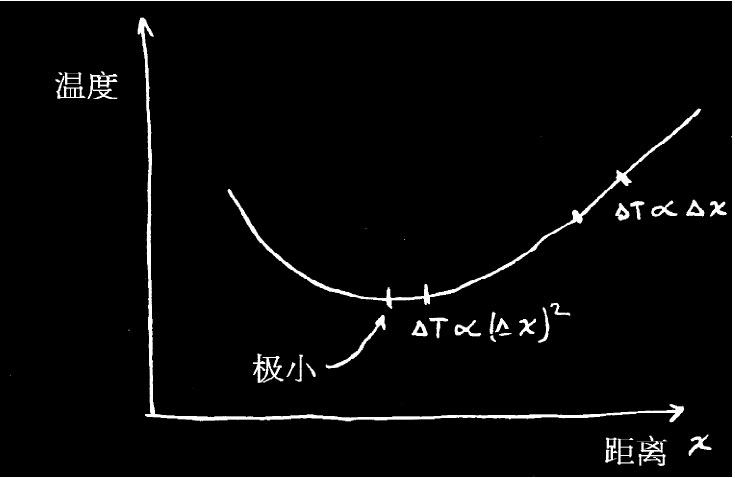 温度
ΔT ∝ Δx
ΔT ∝ (Δx)²
极小
距离 x